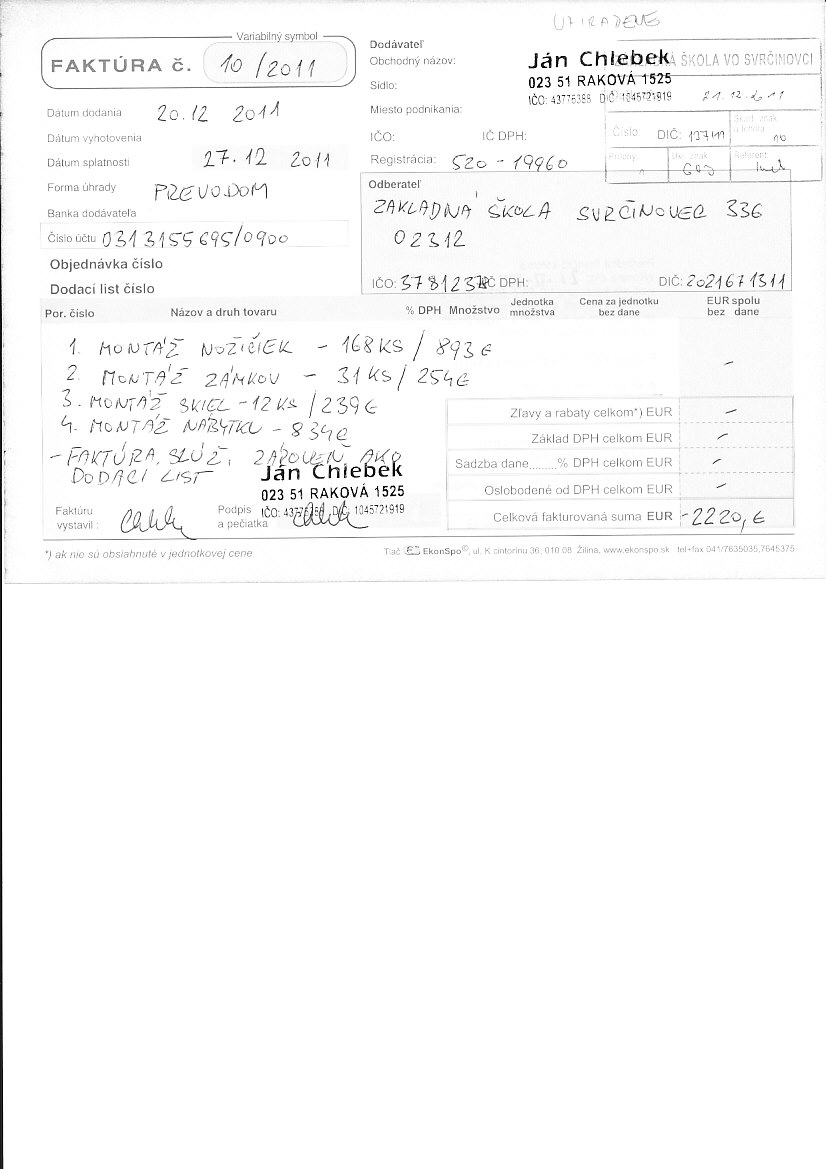 UHRADENÉ
Variabilný symbol
FAKTÚRA č. 10/2011
Dátum dodania 20.12 2011
Dátum vyhotovenia
Dátum splatnosti 27.12 2011
Forma úhrady PREVODOM
Banka dodávateľa
Číslo účtu 0313155695/0900
Objednávka číslo
Dodací list číslo
Dodávateľ
Obchodný názov: Ján Chlebek
Sídlo: 023 51 RAKOVÁ 1525
IČO: 43776388 DIČ: 1045721919
Miesto podnikania:
IČO: IČ DPH: DIČ:
Registrácia: 520 - 19960
ŠKOLA VO SVRČINOVCI
21.12.2011
Číslo
Prílohy
Referent
Odberateľ
ZÁKLADNÁ ŠKOLA SVRČINOVEC 336
02312
IČO: 3781237 IČ DPH: DIČ: 2021671311
Por. číslo Názov a druh tovaru % DPH Množstvo Jednotka množstva Cena za jednotku bez dane EUR spolu bez dane
1. MONTÁŽ NOŽIČIEK - 168 KS / 893 €
2. MONTÁŽ ZÁMKOV - 31 KS / 254 €
3. MONTÁŽ SKIEL - 12 KS / 239 €
4. MONTÁŽ NÁBYTKU - 834 €
- FAKTÚRA SLÚŽI ZÁROVEŇ AKO
DODACÍ LIST
Zľavy a rabaty celkom*) EUR -
Základ DPH celkom EUR -
Sadzba dane......% DPH celkom EUR -
Oslobodené od DPH celkom EUR -
Celková fakturovaná suma EUR -2220,€
Ján Chlebek
023 51 RAKOVÁ 1525
DIČ: 1045721919
Faktúru vystavil :
Podpis a pečiatka
*) ak nie sú obsiahnuté v jednotkovej cene
Tlač EkonSpo©, ul. K cintorínu 36, 010 08 Žilina, www.ekonspo.sk tel+fax 041/7635035,7645375